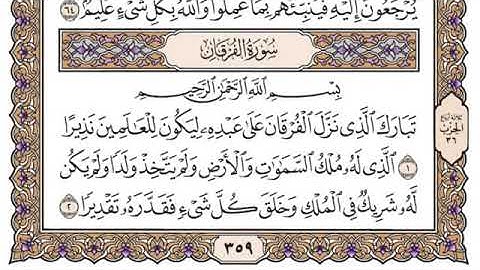 يُرْجَعُونَ إِلَيْهِ فَيُنَبِّئُهُم بِمَا عَمِلُوا۟ وَٱللَّهُ بِكُلِّ شَىْءٍ عَلِيمٌۢ ٦٤
سُورَةُ الفُرْقَانِ
بِسْمِ ٱللَّهِ ٱلرَّحْمَٰنِ ٱلرَّحِيمِ
تَبَارَكَ ٱلَّذِى نَزَّلَ ٱلْفُرْقَانَ عَلَىٰ عَبْدِهِۦ لِيَكُونَ لِلْعَٰلَمِينَ نَذِيرًا
١ ٱلَّذِى لَهُۥ مُلْكُ ٱلسَّمَٰوَٰتِ وَٱلْأَرْضِ وَلَمْ يَتَّخِذْ وَلَدًا وَلَمْ يَكُن
لَّهُۥ شَرِيكٌ فِى ٱلْمُلْكِ وَخَلَقَ كُلَّ شَىْءٍ فَقَدَّرَهُۥ تَقْدِيرًا ٢
ثلاثة أرباع
الحزب
٣٦
٣٥٩